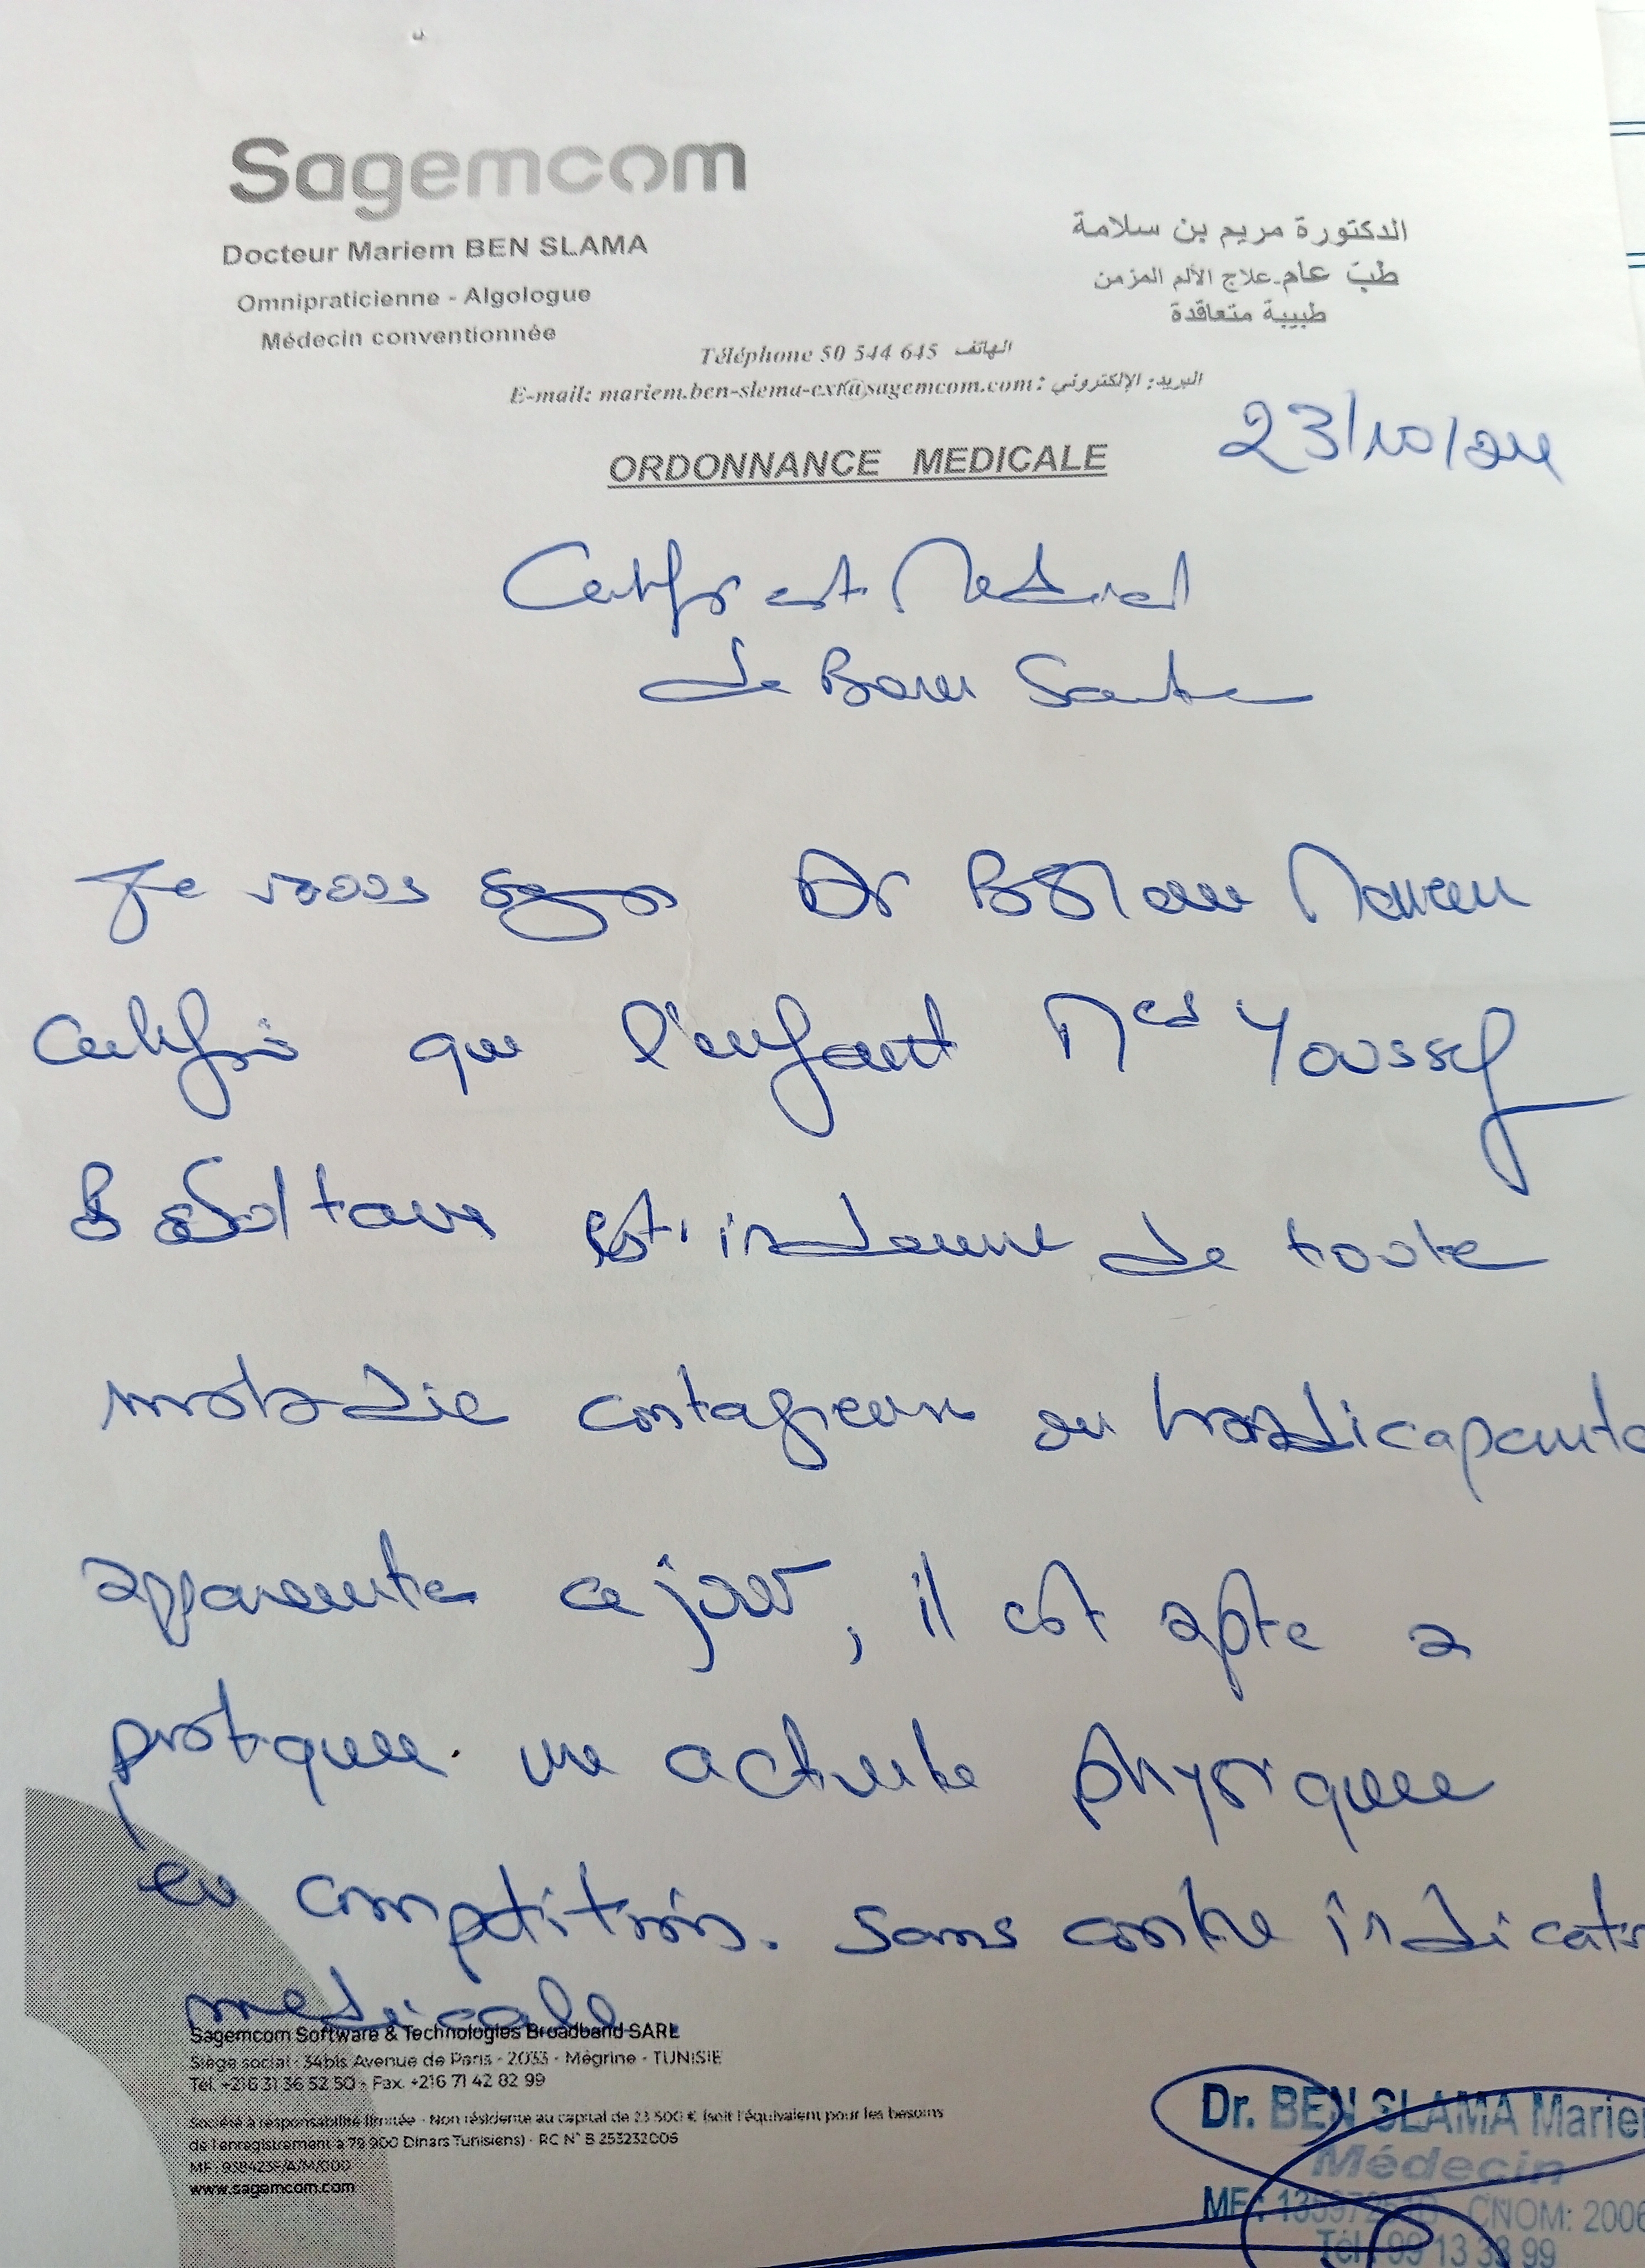 Sagemcom
Docteur Mariem BEN SLAMA
Omnipraticienne - Algologue
Médecin conventionnée
الدكتورة مريم بن سلامة
طبّ عام-علاج الألم المزمن
طبيبة متعاقدة
Téléphone 50 544 645 الهاتف
E-mail: mariem.ben-slema-ext@sagemcom.com : البريد الإلكتروني
ORDONNANCE MEDICALE
23/10/24
Certificat Medical
de Bonne Sante
Je Dr
certifie que l'enfant Med Youssef
est indemne de toute
maladie contagieuse ou handicapante
apparente ce jour, il est apte a
pratiquer une activite physique
en competition. Sans contre indicatio
medicale
Sagemcom Software & Technologies Broadband SARL
Siège social - 34bis Avenue de Paris - 2033 - Mégrine - TUNISIE
Tél. +216 31 36 52 50 - Fax. +216 71 42 82 99
Société à responsabilité limitée - Non résidente au capital de 23 500 € (soit l'équivalent pour les besoins
de l'enregistrement à 79 900 Dinars Tunisiens) - RC N° B 253232006
www.sagemcom.com
Dr. BEN SLAMA Marie
Médecin
MF: CNOM: 2006
Tél: 99 13 33 99